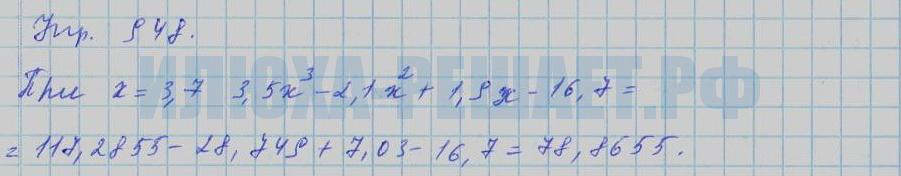 Упр. 948.
При x = 3,7 3,5x³ - 2,1x² + 1,9x - 16,7 =
= 117,2855 - 28,749 + 7,03 - 16,7 = 78,8655.
ИЛЮХА-РЕШАЕТ.РФ